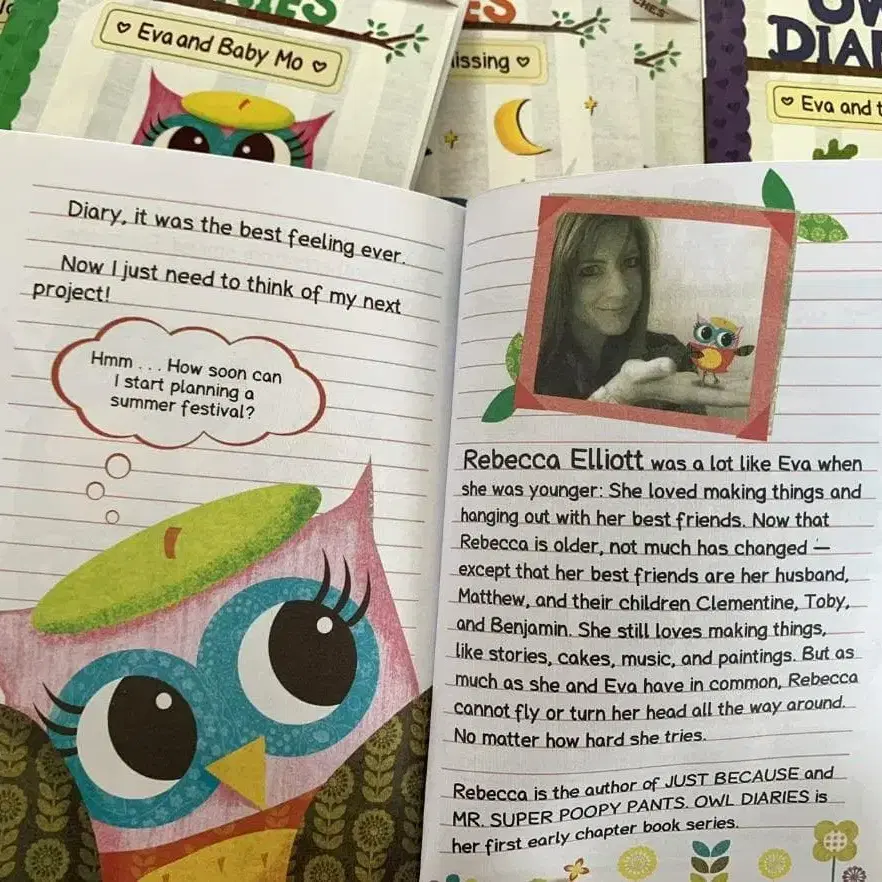 Eva and Baby Mo
issing
CHES
OW
DIAR
Eva and t
Diary, it was the best feeling ever.
Now I just need to think of my next
project!
Hmm . . . How soon can
I start planning a
summer festival?
Rebecca Elliott was a lot like Eva when
she was younger: She loved making things and
hanging out with her best friends. Now that
Rebecca is older, not much has changed —
except that her best friends are her husband,
Matthew, and their children Clementine, Toby,
and Benjamin. She still loves making things,
like stories, cakes, music, and paintings. But as
much as she and Eva have in common, Rebecca
cannot fly or turn her head all the way around.
No matter how hard she tries.
Rebecca is the author of JUST BECAUSE and
MR. SUPER POOPY PANTS. OWL DIARIES is
her first early chapter book series.